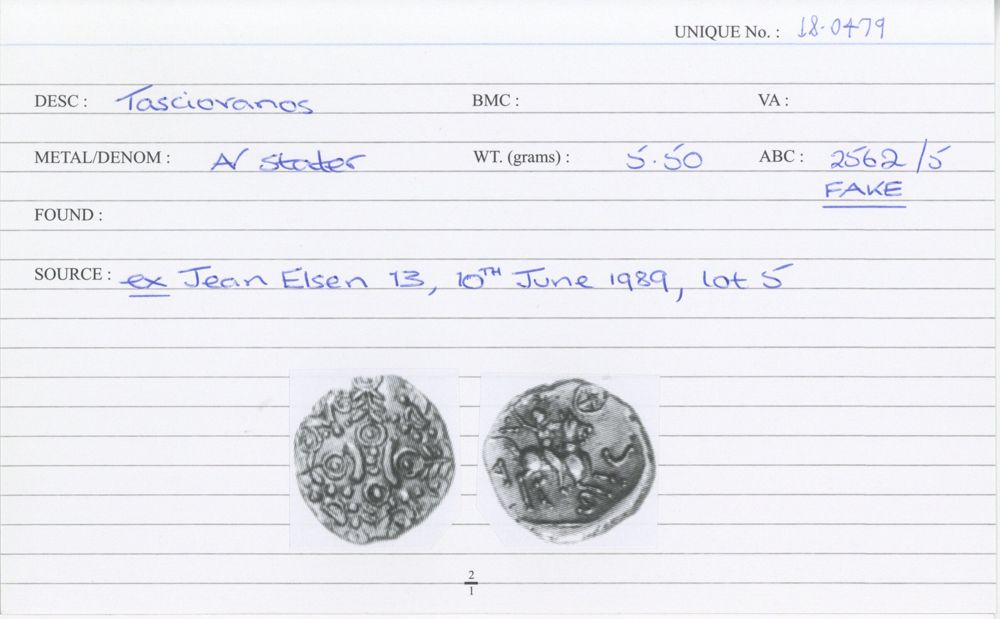 UNIQUE No. : 18.0479
DESC : Tasciovanos BMC : VA :
METAL/DENOM : A/ stater WT. (grams) : 5.50 ABC : 2562/5
FAKE
FOUND :
SOURCE : ex Jean Elsen 13, 10TH June 1989, lot 5
2
1